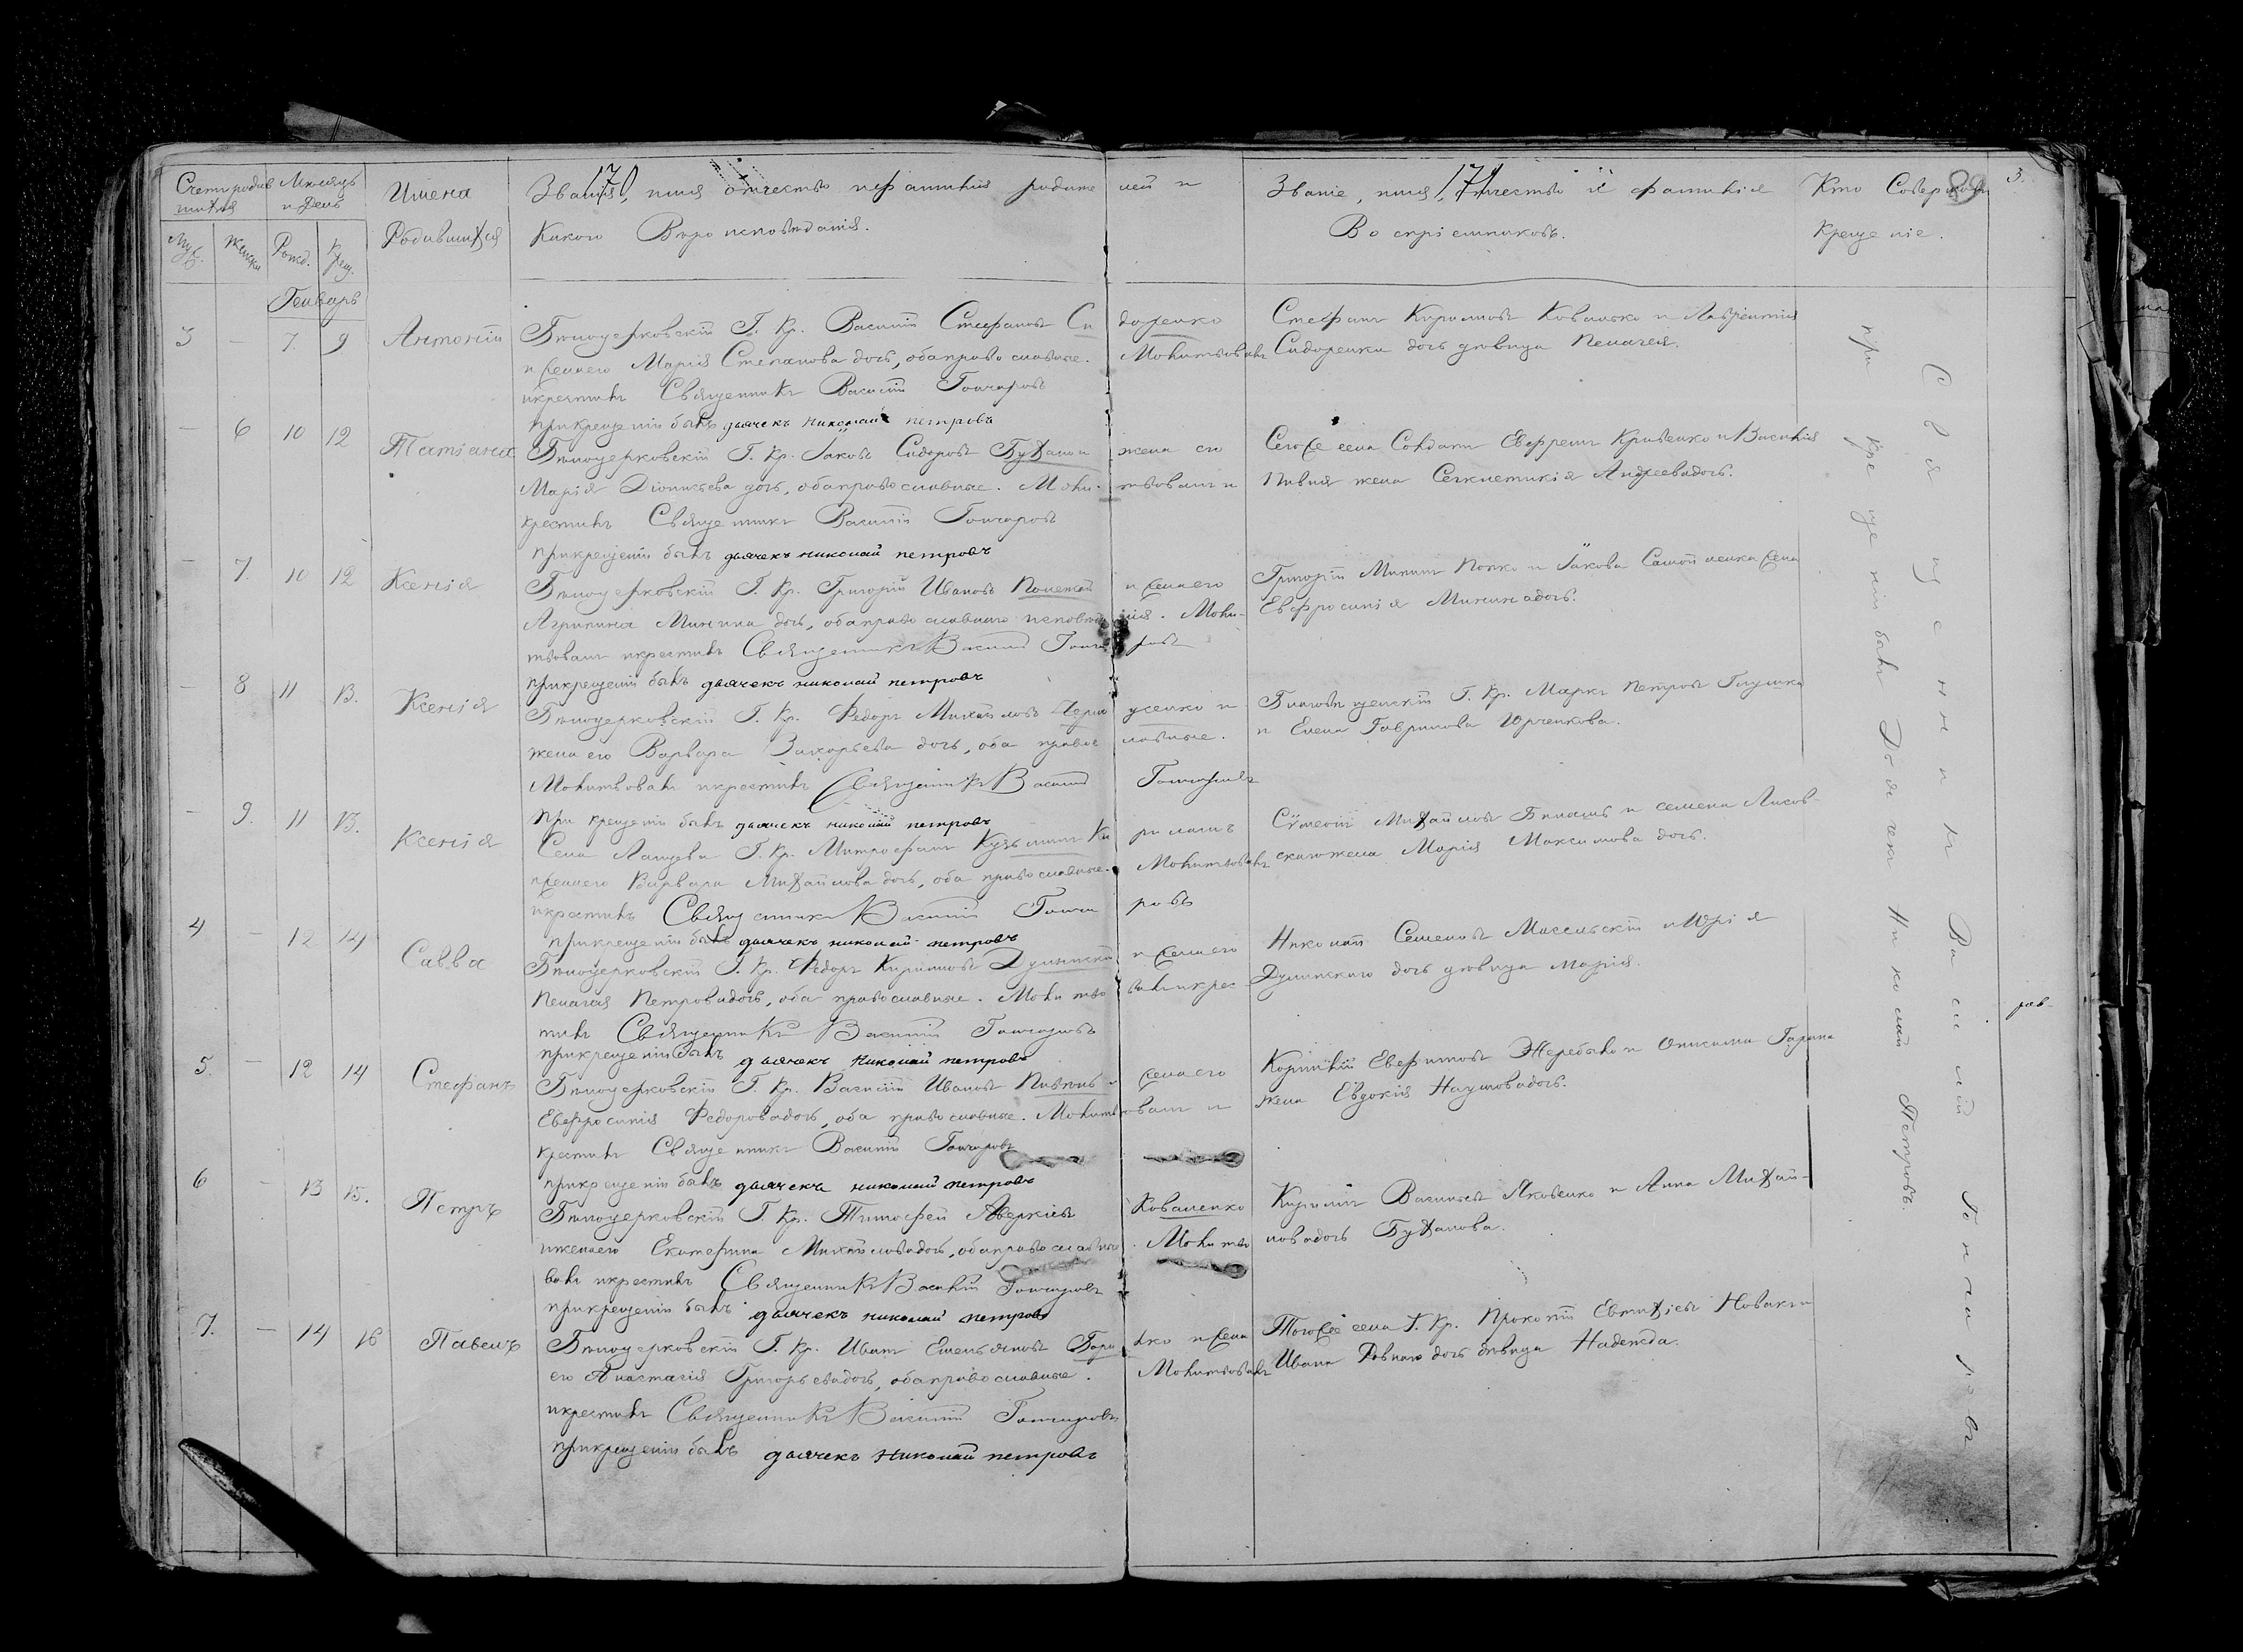 170
171
89
3.
Счетъ родив Мѣсяцъ
шихся и День
Имена
Родившихся
Званіе, имя отчество и фамилія родите лей и
Какого Вѣроисповѣданія.
Званіе, имя, отчество и фамилія
Воспріемниковъ.
Кто Совершалъ
Крещеніе.
Муж. Женск. Рожд. Крещ.
Генварь
3 — 7. 9 Антоній
Бѣлоцерковскій Г. Кр. Василій Стефановъ Си доренко
и жена его Марія Степанова дочь, оба православные. Молитвовалъ
и крестилъ Священникъ Василій Гончаровъ
при крещеніи былъ дьячекъ николай петровъ
Стефанъ Кириловъ Ковалько и Лаврентія
Сидоренка дочь дѣвица Пелагея.
— 6 10 12 Татіана
Бѣлоцерковскій Г. Кр. Іаковъ Сидоровъ Буханъ и жена его
Марія Діонисьева дочь, оба православные. Моли- твовалъ и
крестилъ Священникъ Василій Гончаровъ
при крещеніи былъ дьячекъ николай петровъ
Сего же села Солдатъ Ефремъ Кривенко и Василія
Пивня жена Андреева дочь.
— 7. 10 12 Ксенія
Бѣлоцерковскій Г. Кр. Григорій Ивановъ и жена его
Агрипина Минина дочь, оба православнаго исповѣда нія. Моли-
твовалъ и крестилъ Священникъ Василій Гонча ровъ
при крещеніи былъ дьячекъ николай петровъ
Григорій Мининъ Попко и Іакова жена
Евфросинія Минина дочь.
— 8 11 13. Ксенія
Бѣлоцерковскій Г. Кр. Федоръ Михайловъ Черно усенко и
жена его Варвара Захарьева дочь, оба правос лавные.
Молитвовалъ и крестилъ Священникъ Василій Гончаровъ
при крещеніи былъ дьячекъ николай петровъ
Г. Кр. Маркъ Петровъ Глушко
и Елена Гаврилова Юрченкова.
— 9. 11 13. Ксенія
Села Г. Кр. Митрофанъ Кузьминъ Ки риланъ
и жена его Варвара Михайлова дочь, оба православные. Молитвовалъ
и крестилъ Священникъ Василій Гонча ровъ
при крещеніи былъ дьячекъ николай петровъ
Сѵмеонъ Михайловъ и семена Лисов-
скаго жена Марія Максимова дочь.
4 — 12 14 Савва
Бѣлоцерковскій Г. Кр. Федоръ Кириловъ Дулинскій и жена его
Пелагея Петрова дочь, оба православные. Молитво валъ и крес-
тилъ Священникъ Василій Гончаровъ
при крещеніи былъ дьячекъ николай петровъ
Николай Семеновъ и Юрія
Дулинскаго дочь дѣвица Марія.
5. — 12 14 Стефанъ
Бѣлоцерковскій Г. Кр. Василій Ивановъ Пивень и жена его
Евфросинія Федорова дочь, оба православные. Молитвовалъ и
крестилъ Священникъ Василій Гончаровъ
при крещеніи былъ дьячекъ николай петровъ
Корнилій Евфимовъ Жеребыло и Онисима
жена Евдокія Наумова дочь.
6 — 13 15. Петръ
Бѣлоцерковскій Г. Кр. Тимофей Аверкіевъ Коваленко
и жена его Екатерина Михайлова дочь, оба православные. Молитво
валъ и крестилъ Священникъ Василій Гончаровъ
при крещеніи былъ дьячекъ николай петровъ
Кирилъ Васильевъ Яковенко и Анна Михай-
лова дочь Буханова.
7. — 14 16 Павелъ
Бѣлоцерковскій Г. Кр. Иванъ Емельяновъ и жена
его Анастасія Григорьева дочь, оба православные. Молитвовалъ
и крестилъ Священникъ Василій Гончаровъ
при крещеніи былъ дьячекъ николай петровъ
Того же села Г. Кр. Прокопій Евтихіевъ Новакъ и
Ивана дочь дѣвица Надежда.
Священникъ Василій Гончаровъ
при крещеніи былъ Дьячекъ Николай Петровъ.